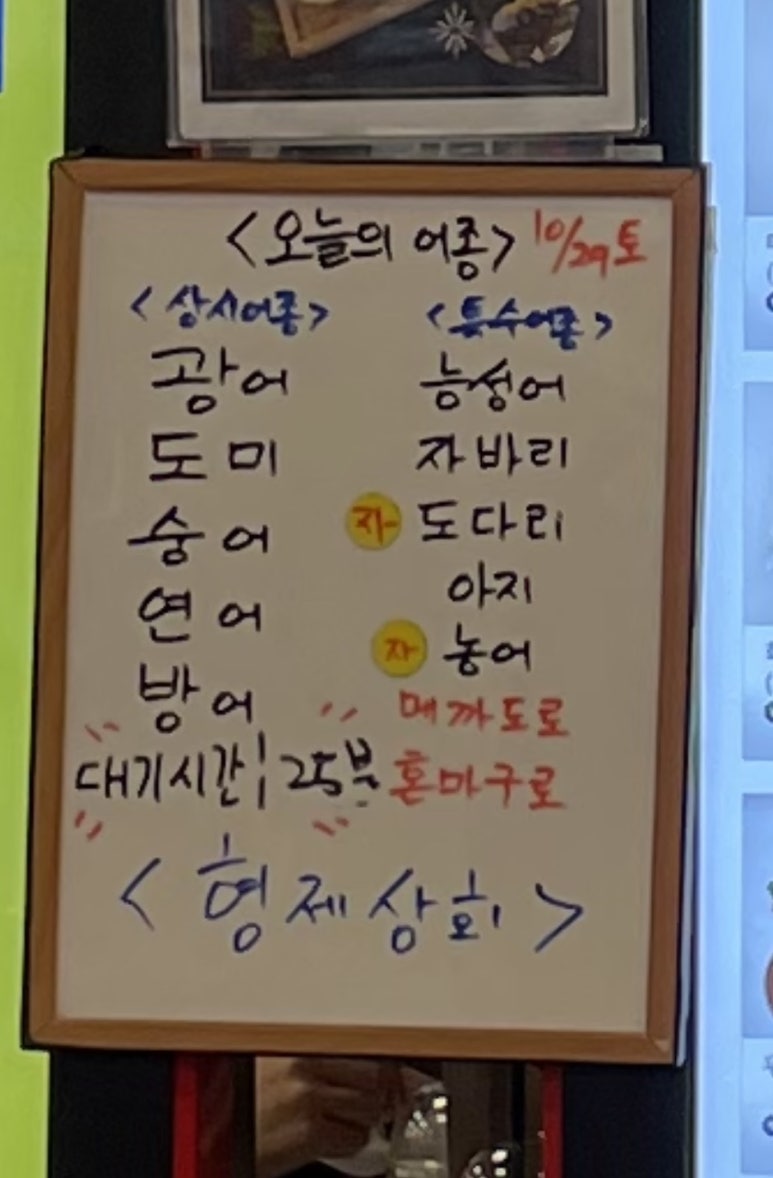 <오늘의 어종> 10/29 토
<상시어종>
광어
도미
숭어
연어
방어
<특수어종>
능성어
자바리
자 도다리
아지
자 농어
메까도로
혼마구로
대기시간 | 25분
<형제상회>